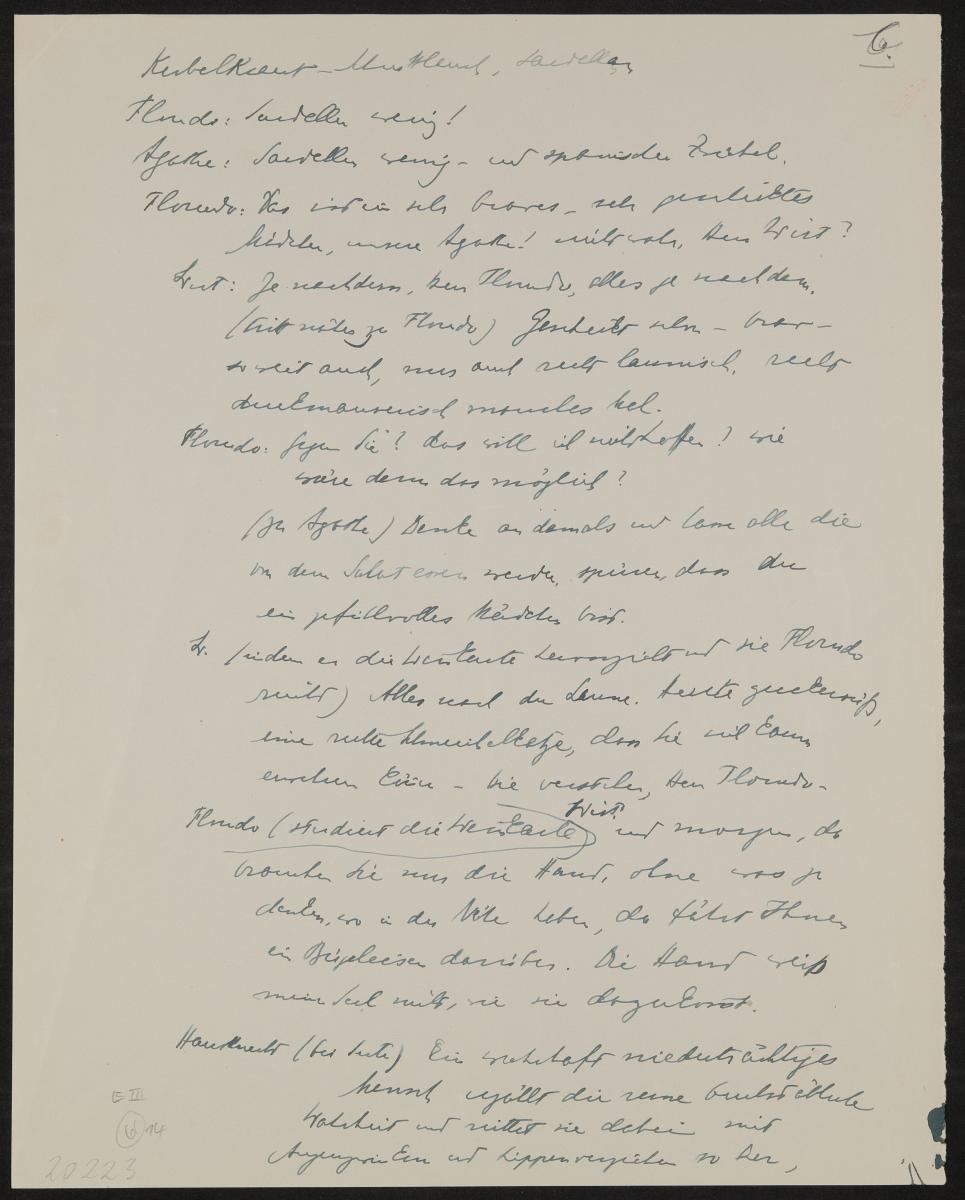 6.
Kerbelkraut – Sardellen
Florindo: Sardellen wenig!
Agathe: Sardellen wenig – und spanischen Zwiebel.
Florindo: Das ist ein sehr braves – sehr gescheidtes
Mädchen, unsere Agathe! nicht wahr, Herr Wirt?
Wirt: Je nachdem, Herr Florindo, alles je nachdem.
(tritt näher zu Florindo) Gescheidt schon – brav –
so weit auch, nur auch recht launisch, recht
duckmäuserisch manches Mal.
Florindo: Gegen Sie? das will ich nicht hoffen? wie
wäre denn das möglich?
(zu Agathe) Denke an damals und lasse alle die
von dem Salat essen werden, spüren, dass du
ein gefühlvolles Mädchen bist.
W. (indem er die Weinkarte hervorzieht und sie Florindo
reicht) Alles nach der Laune. Heute zuckersüß,
eine rechte Schmeichelkatze, dass Sie sich kaum
erwehren können – Sie verstehen, Herr Florindo –
Florindo (studiert die Weinkarte) Wirt: und morgen, da
brauchen Sie nur die Hand, ohne was zu
denken, wo in der Nähe haben, da fährt Ihnen
ein Bügeleisen darüber. Die Hand weiß
mein Seel nicht, wie sie dazukommt.
Hausknecht (bei Seite) Ein wahrhaft niederträchtiges
Mensch erzählt die reine buchstäbliche
Wahrheit und richtet sie dabei mit
Augenzwinkern und Lippenverziehen so her,
E III
6 14
20223